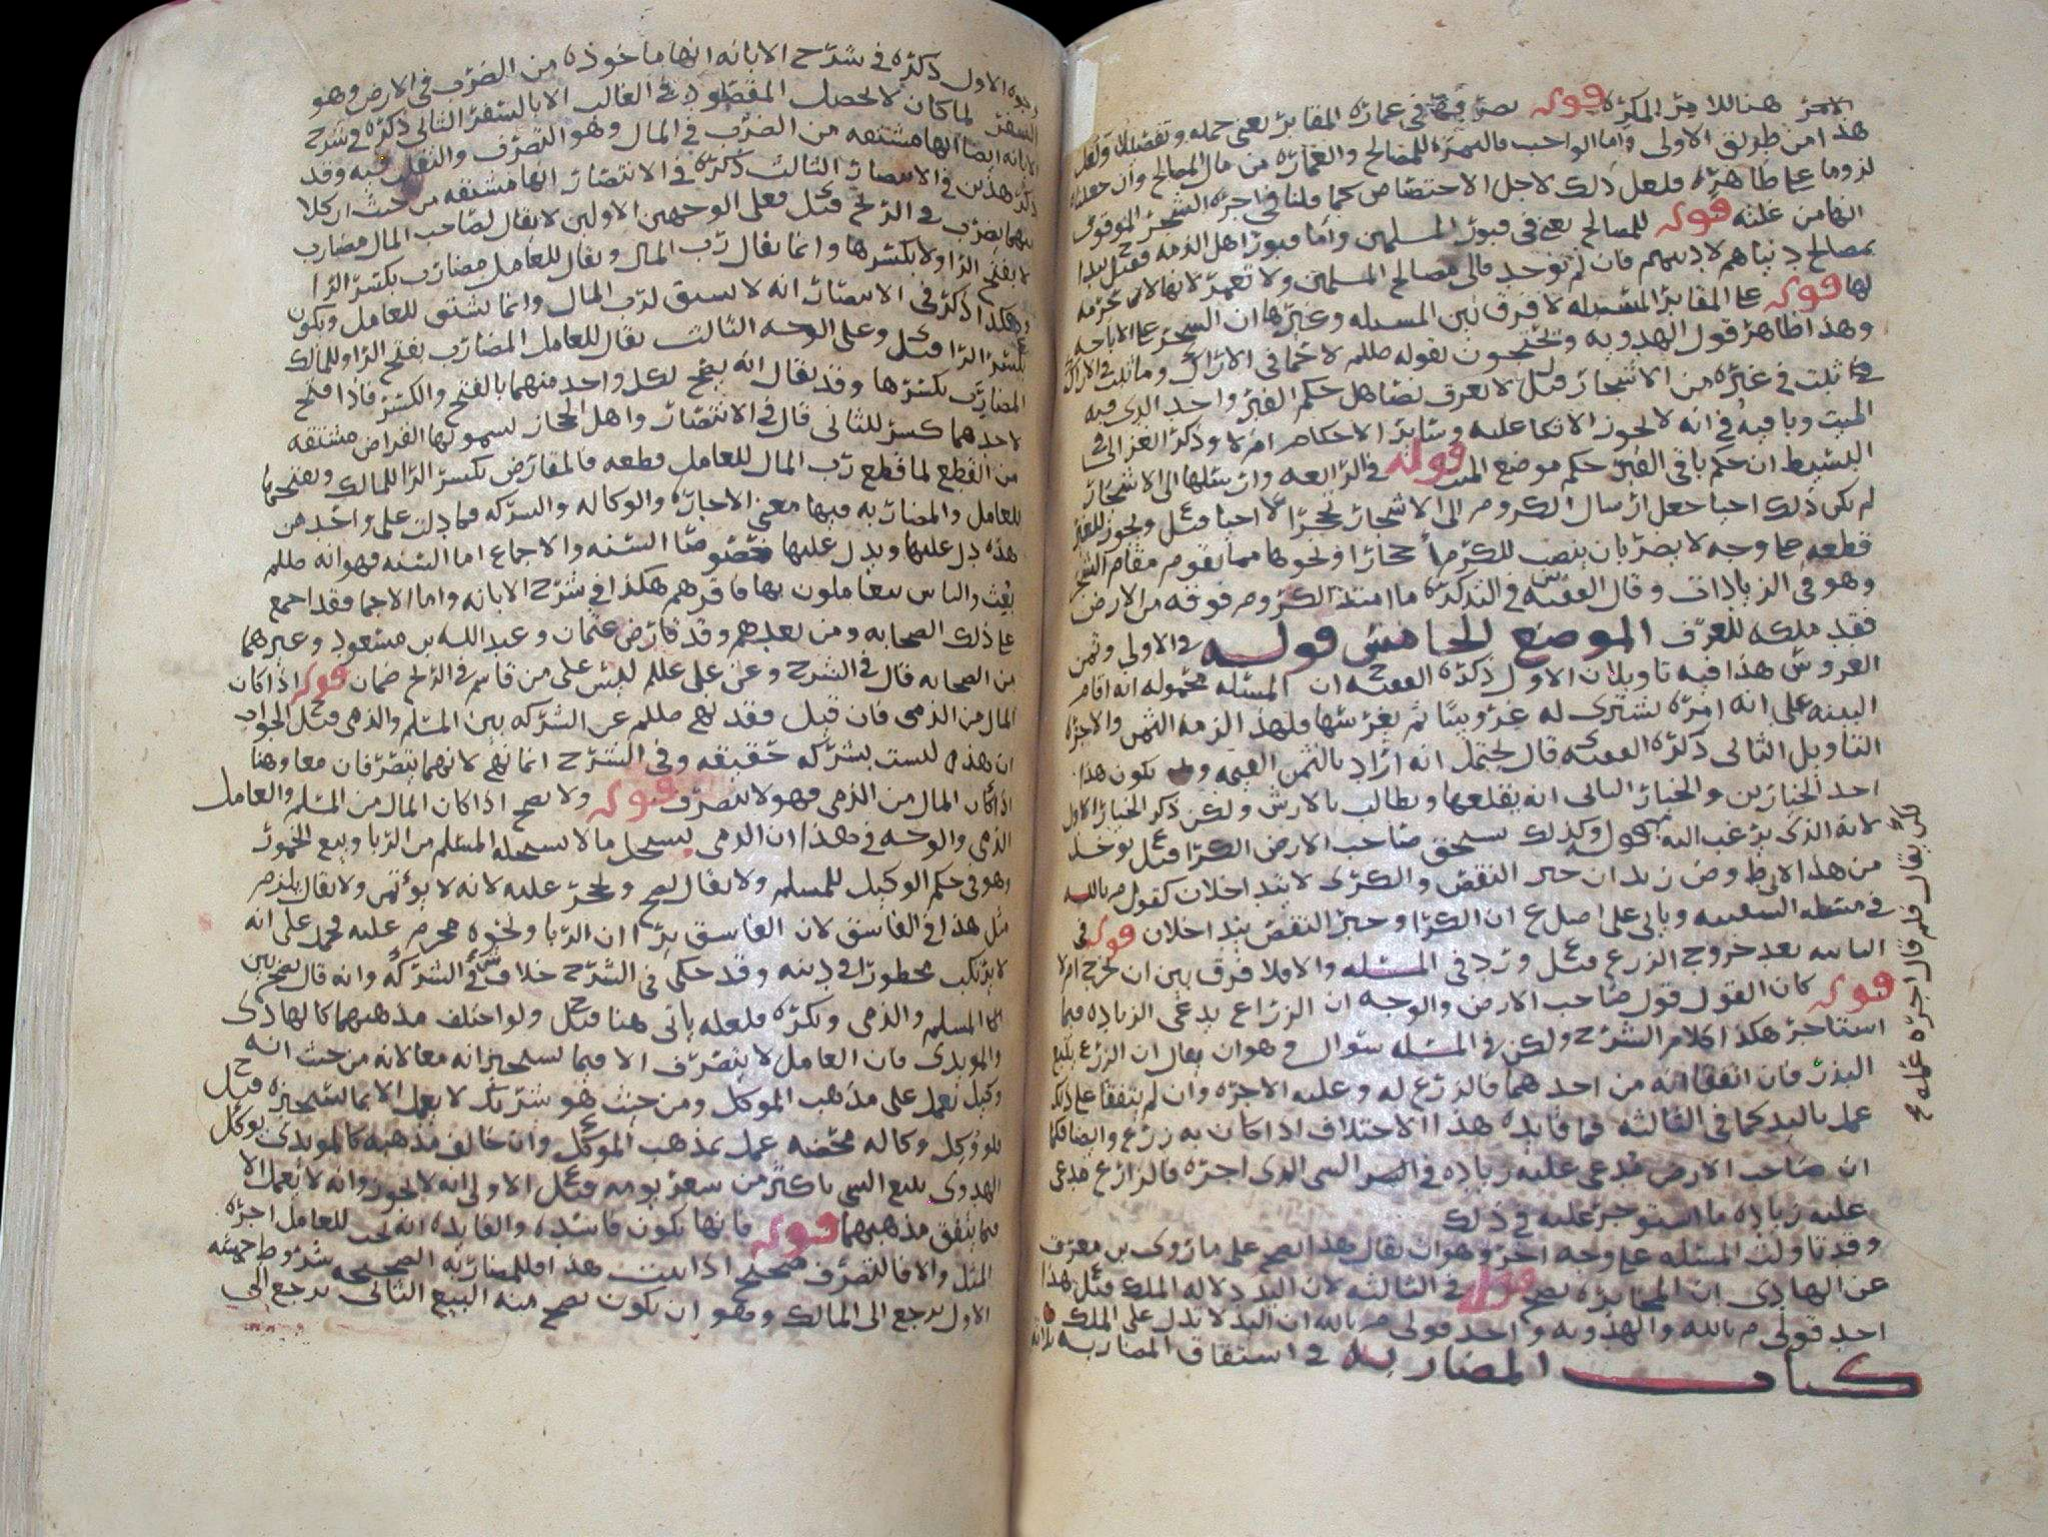 الاجر هنا للامر المكره قوله يصرفها في عمارة المقابر يعني جمله وتفصيلا ولعل
هذا من طريق الاولى واما الواجب فالثمرة للمصالح والعمارة من مال المصالح وان جعلناه
لزوما على ظاهره فلعل ذلك لاجل الاختصاص كما قلنا في اجره الشجر الموقوف
انها من غلته قوله للمصالح يعني في قبور المسلمين واما قبور اهل الذمه فقيل يبدا
بمصالح دنياهم لا دينهم فان لم توجد فالى مصالح المسلمين ولا تعمر لانها لا محرمه
لها قوله على المقابر المسبله لا فرق بين المسبله وغيرها ان الشجر على الاباحه
وهذا ظاهر قول الهدويه ويحتجون بقوله صللم لا حما في الاراك وما ثبت في الاراك
ثبت في غيره من الاشجار قيل لا يعرف نصا هل حكم القبر واحد الذي فيه
الميت وباقيه في انه لا يجوز الاتكا عليه وسائر الاحكام ام لا وذكر الغزالي في
البسيط ان حكم باقي القبر حكم موضع الميت قوله في الرابعه وارسلها الى الاشجار
لم يكن ذلك احيا جعل ارسال الكروم الى الاشجار تحجرا لا احيا قيل ويجوز للغير
قطعه على وجه لا يضر بان ينصب للكرم احجارا ونحوها مما يقوم مقام الشجر
وهو في الزيادات وقال الفقيه س في التذكره ما امتد الكروم فوقه من الارض
فقد ملكه للعرف الموضع الخامس قوله في الاولى وثمن
الغروس هذا فيه تاويلان الاول ذكره الفقيه ح ان المسئله محموله انه اقام
البينه على انه امره يشتري له غروسا ثم يغرسها فلهذا الزمه الثمن والاجره
التاويل الثاني ذكره الفقيه قال يحتمل انه اراد بالثمن القيمه يكون هذا
احد الخيارين والخيار الثاني انه يقلعها ويطالب بالارش ولكن ذكر الخيار الاول
لانه الذي يرغب اليه قوله وكذلك يستحق صاحب الارض الكرا قيل يوخذ
من هذا ان حبر النقض والكرى لا يتداخلان كقول م بالله
في مسئله السفينه وياتي على اصل ع ان الكرا وحبر النقض يتداخلان قوله في
الثانيه بعد خروج الزرع قيل ورد في المسئله والا فلا فرق بين ان يخرج ام لا
قوله كان القول قول صاحب الارض والوجه ان الزراع يدعي الزياده فيما
استاجر هكذا كلام الشرح ولكن في المسئله سؤال وهو ان يقال ان الزرع يتبع
البذر فان اتفقا انه من احدهما فالزرع له وعليه الاجره وان لم يتفقا على ذلك
عمل باليد كما في الثالثه فما فايده هذا الاختلاف اذا كان به زرع وايضا فكما
ان صاحب الارض مدعى عليه زياده في الشي الذي اجره فالزارع مدعى
عليه زياده ما استوجر عليه في ذلك
وقد تاولت المسئله على وجه اخر وهو ان يقال هذا يصح على ما روى بن معرف
عن الهادي ان المخابره تصح قوله في الثالثه لان اليد دلاله الملك قيل هذا
احد قولي م بالله والهدويه واحد قولي م بالله ان اليد لا تدل على الملك
كتاب المضاربه في اشتقاق المضاربه ثلاثه
كان يقال فلم قال اجره عمله ع
وجوه الاول ذكره في شرح الابانه انها ماخوذه من الضرب في الارض وهو
السفر لما كان لا يحصل المقصود في الغالب الا بالسفر الثاني ذكره في شرح
الابانه ايضا انها مشتقه من الضرب في المال وهو التصرف والتقلب فيه وقد
ذكر هذين في الانتصار الثالث ذكره في الانتصار انها مشتقه من حيث ان كلا
منهما يضرب في الربح قيل فعلى الوجهين الاولين لا يقال لصاحب المال مضارب
لا بفتح الرا ولا بكسرها وانما يقال رب المال ويقال للعامل مضارب بكسر الرا
وهكذا ذكر في الانتصار انه لا يشتق لرب المال وانما يشتق للعامل ويكون
بكسر الرا قيل وعلى الوجه الثالث يقال للعامل المضارب بفتح الرا وللمالك
المضارب بكسرها وقد يقال انه يصح لكل واحد منهما بالفتح والكسر فاذا فتح
لاحدهما كسر للثاني قال في الانتصار واهل الحجاز يسمونها القراض مشتقه
من القطع لما قطع رب المال للعامل قطعه فالمقارض بكسر الرا للمالك وبفتحها
للعامل والمضاربه فيها معنى الاجاره والوكاله والشركه فما دلت على واحد من
هذه دل عليها ويدل عليها خصوصا السنه والاجماع اما السنه فهو انه صللم
بعث والناس يتعاملون بها فاقرهم هكذا في شرح الابانه واما الاجماع فقد اجمع
على ذلك الصحابه ومن بعدهم وقد قارض عثمان وعبدالله بن مسعود وغيرهما
من الصحابه قال في الشرح وعن علي عللم ليس على من قاسم في الربح ضمان قوله اذا كان
المال من الذمي فان قيل فقد نهى صللم عن الشركه بين المسلم والذمي قيل الجواب
ان هذه ليست بشركه حقيقه وفي الشرح انما نهى لانهما يتصرفان معا وهنا
اذا كان المال من الذمي فهو لا يتصرف قوله ولا يصح اذا كان المال من المسلم والعامل
الذمي والوجه في هذا ان الذمي يستحل ما لا يستحله المسلم من الربا وبيع الخمور
وهو في حكم الوكيل للمسلم ولا يقال يصح ويحجر عليه لانه لا يؤتمن ولا يقال يلزم
مثل هذا في الفاسق لان الفاسق يرا ان الربا ونحوه محرم عليه فحمل على انه
لا يرتكب محظورا في دينه وقد حكى في الشرح خلاف ش في الشركه وانه قال تصح بين
المسلم والذمي وتكره فلعله ياتي هنا قيل ولو اختلف مذهبهما كالهادي
والمويدي فان العامل لا يتصرف الا فيما يستجيزانه معا لانه من حيث انه
وكيل يعمل على مذهب الموكل ومن حيث هو شريك لا يعمل الا بما يستجيزه قيل
فلو وكل وكاله محضه عمل بمذهب الموكل وان خالف مذهبه كالمويدي يوكل
الهدوي ببيع الشي باكثر من سعر يومه قيل الاولى انه لا يجوز وانه لا يعمل الا
بما يتفق مذهبهما قوله فانها تكون فاسده والفايده انه يجب للعامل اجره
المثل والا فالتصرف صحيح اذا ثبت هذا فللمضاربه الصحيحه شروط خمسه
الاول يرجع الى المالك وهو ان يكون يصح منه البيع الثاني يرجع الى